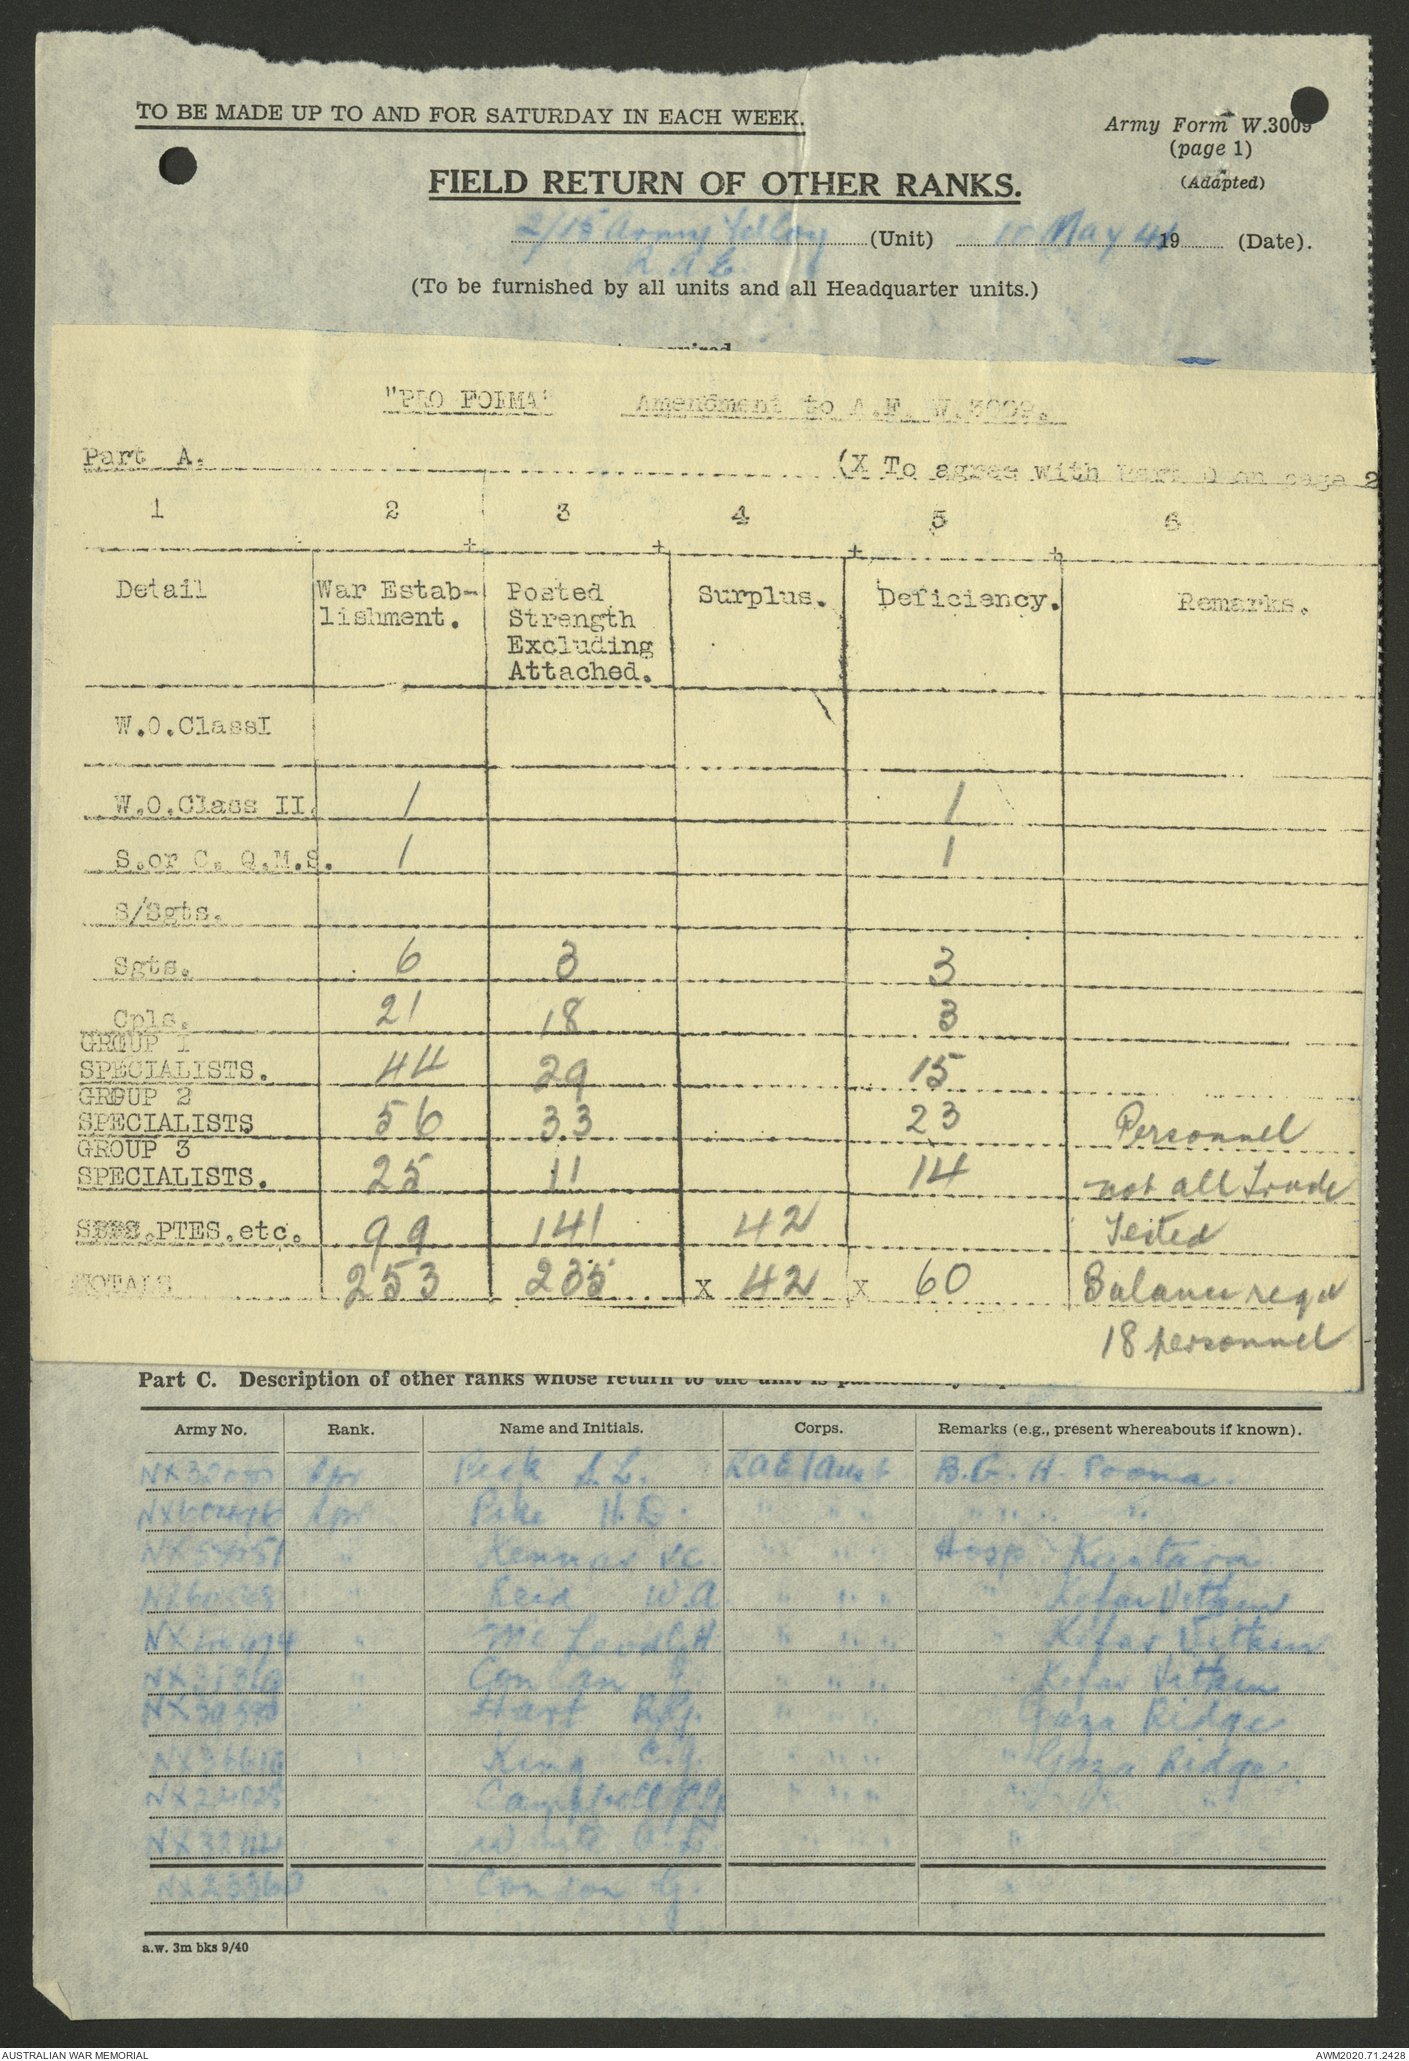 TO BE MADE UP TO AND FOR SATURDAY IN EACH WEEK.
Army Form W.3009
(page 1)
(Adapted)
FIELD RETURN OF OTHER RANKS.
2/15 Army Fd Coy (Unit) 10 May 41 19 (Date).
R.A.E.
(To be furnished by all units and all Headquarter units.)
"PRO FORMA" Amendment to A.F. W.3009.
Part A. (X To agree with Part D on page 2
1 2 3 4 5 6
Detail War Estab- Posted Surplus. Deficiency. Remarks.
lishment. Strength
Excluding
Attached.
W.O.ClassI
W.O.Class II. 1 1
S.or C. Q.M.S. 1 1
S/Sgts.
Sgts. 6 3 3
Cpls. 21 18 3
GROUP 1
SPECIALISTS. 44 29 15
GROUP 2
SPECIALISTS 56 33 23 Personnel
GROUP 3
SPECIALISTS. 25 11 14 not all Trade
PTES.etc. 99 141 42 Tested
TOTALS 253 235 X 42 X 60 Balance reqd
18 personnel
Part C. Description of other ranks whose return to the unit is
Army No. Rank. Name and Initials. Corps. Remarks (e.g., present whereabouts if known).
Spr L.L. RAE/Aust B.G.H. Poona
Spr Pike H. " " " " " "
" " " Hosp Kantara
" Reid W.A. " " " " Kefar Vitkin
" " " " " Kefar Vitkin
" Conlan " " " " Kefar Vitkin
" Start R.G. " " " Gaza Ridge
" King C.J. " " " " Gaza Ridge
" Campbell " " " " "
" White A.E. "
" Condon G. "
a.w. 3m bks 9/40
AUSTRALIAN WAR MEMORIAL AWM2020.71.2428